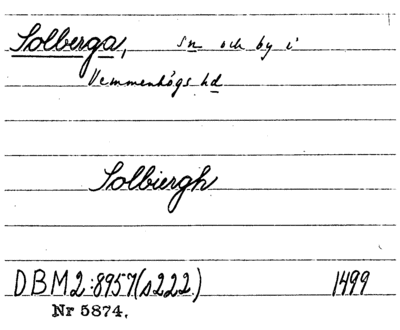 Solberga, sn och by i
Vemmenhögs hd
Solbiergh
DBM2:8957(s222.) 1499
Nr 5874.